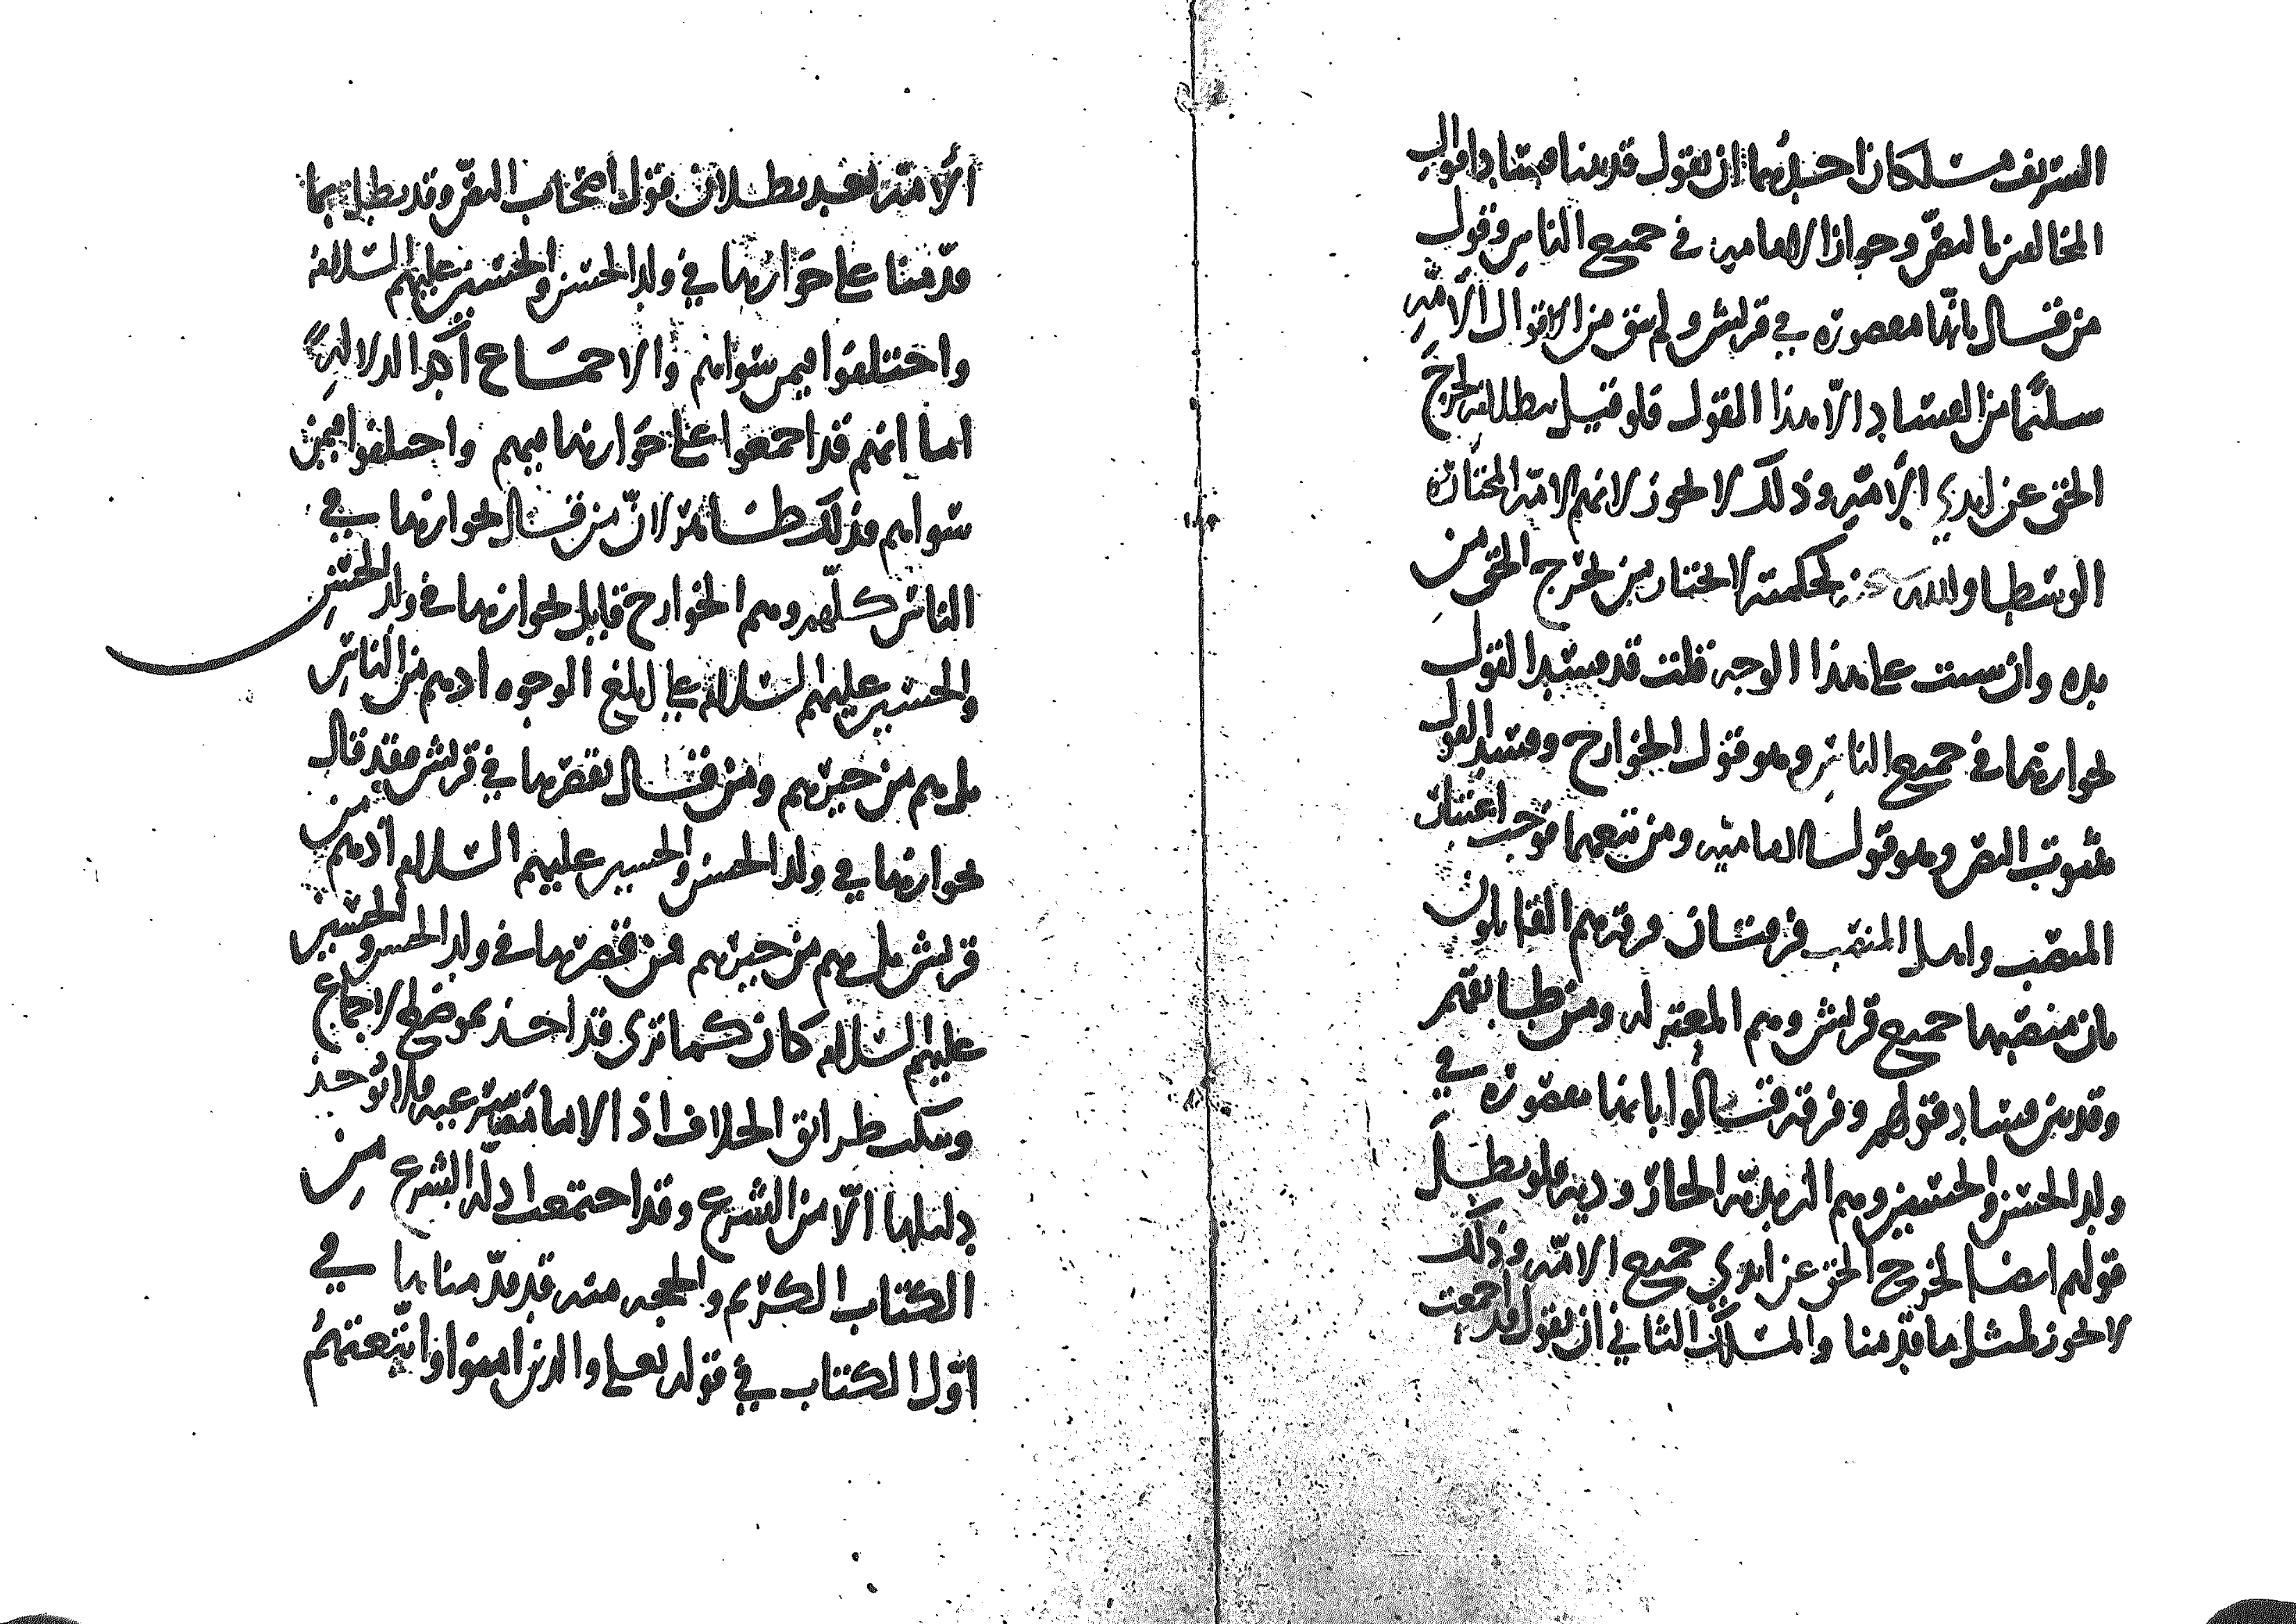 الشريف مسلكان احدهما ان نقول قد بينا فساد اقوال
المخالفين بالنص وجواز الامامة في جميع الناس وقول
من قال بانها مقصورة في قريش ولم يبق من الاقوال الأمة
سليما من الفساد الا هذا القول فلو قيل ببطلانه لخرج
الحق عن ايدي الأمة وذلك لا يجوز لانهم الامة المختارة
الوسطا والله بحكمته لا يختار من يخرج الحق من
يده وان شئت على هذا الوجه قلت قد فسد القول
بجوازها في جميع الناس وهو قول الخوارج وفسد القول
بثبوت النص وهو قول الامامية ومن تبعهما فوجب اعتبار
المنصب واهل المنصب فرقتان فرقة هم القايلون
بان منصبها جميع قريش وهم المعتزلة ومن طابقهم
وقد بين فساد قولهم وفرقة قالوا بانها مقصورة في
ولد الحسن والحسين وهم الزيدية الجارودية فلو بطل
قولهم ايضا لخرج الحق عن ايدي جميع الامة وذلك
لا يجوز لمثل ما قدمنا والمسلك الثاني ان نقول قد اجمعت
الأمة بعد بطلان قول اصحاب النص وقد بطل بما
قدمنا على جوازها في ولد الحسن والحسين عليهم السلام
واختلفوا فيمن سواهم والاجماع آكد الدلالة
اما انهم قد اجمعوا على جوازها فيهم واختلفوا فيمن
سواهم فذلك ظاهر لان من قال بجوازها في
الناس كلهم وهم الخوارج قايل بجوازها في ولد الحسن
والحسين عليهم السلام على ابلغ الوجوه اذ هم من الناس
بل هم من خيرهم ومن قال بقصرها في قريش فقد قال
بجوازها في ولد الحسن والحسين عليهم السلام اذ هم من
قريش بل هم من خيرهم فمن قصرها في ولد الحسن والحسين
عليهم السلام كان كما ترى قد اخذ بموضع الاجماع
وسكت طرائق الخلاف اذ الامامة شرعية فلا توخذ
دليلها الا من الشرع وقد اجتمعت ادلة الشرع من
الكتاب الكريم والحجة منه قد قدمناها في
اول الكتاب في قوله تعالى والذين امنوا واتبعتهم